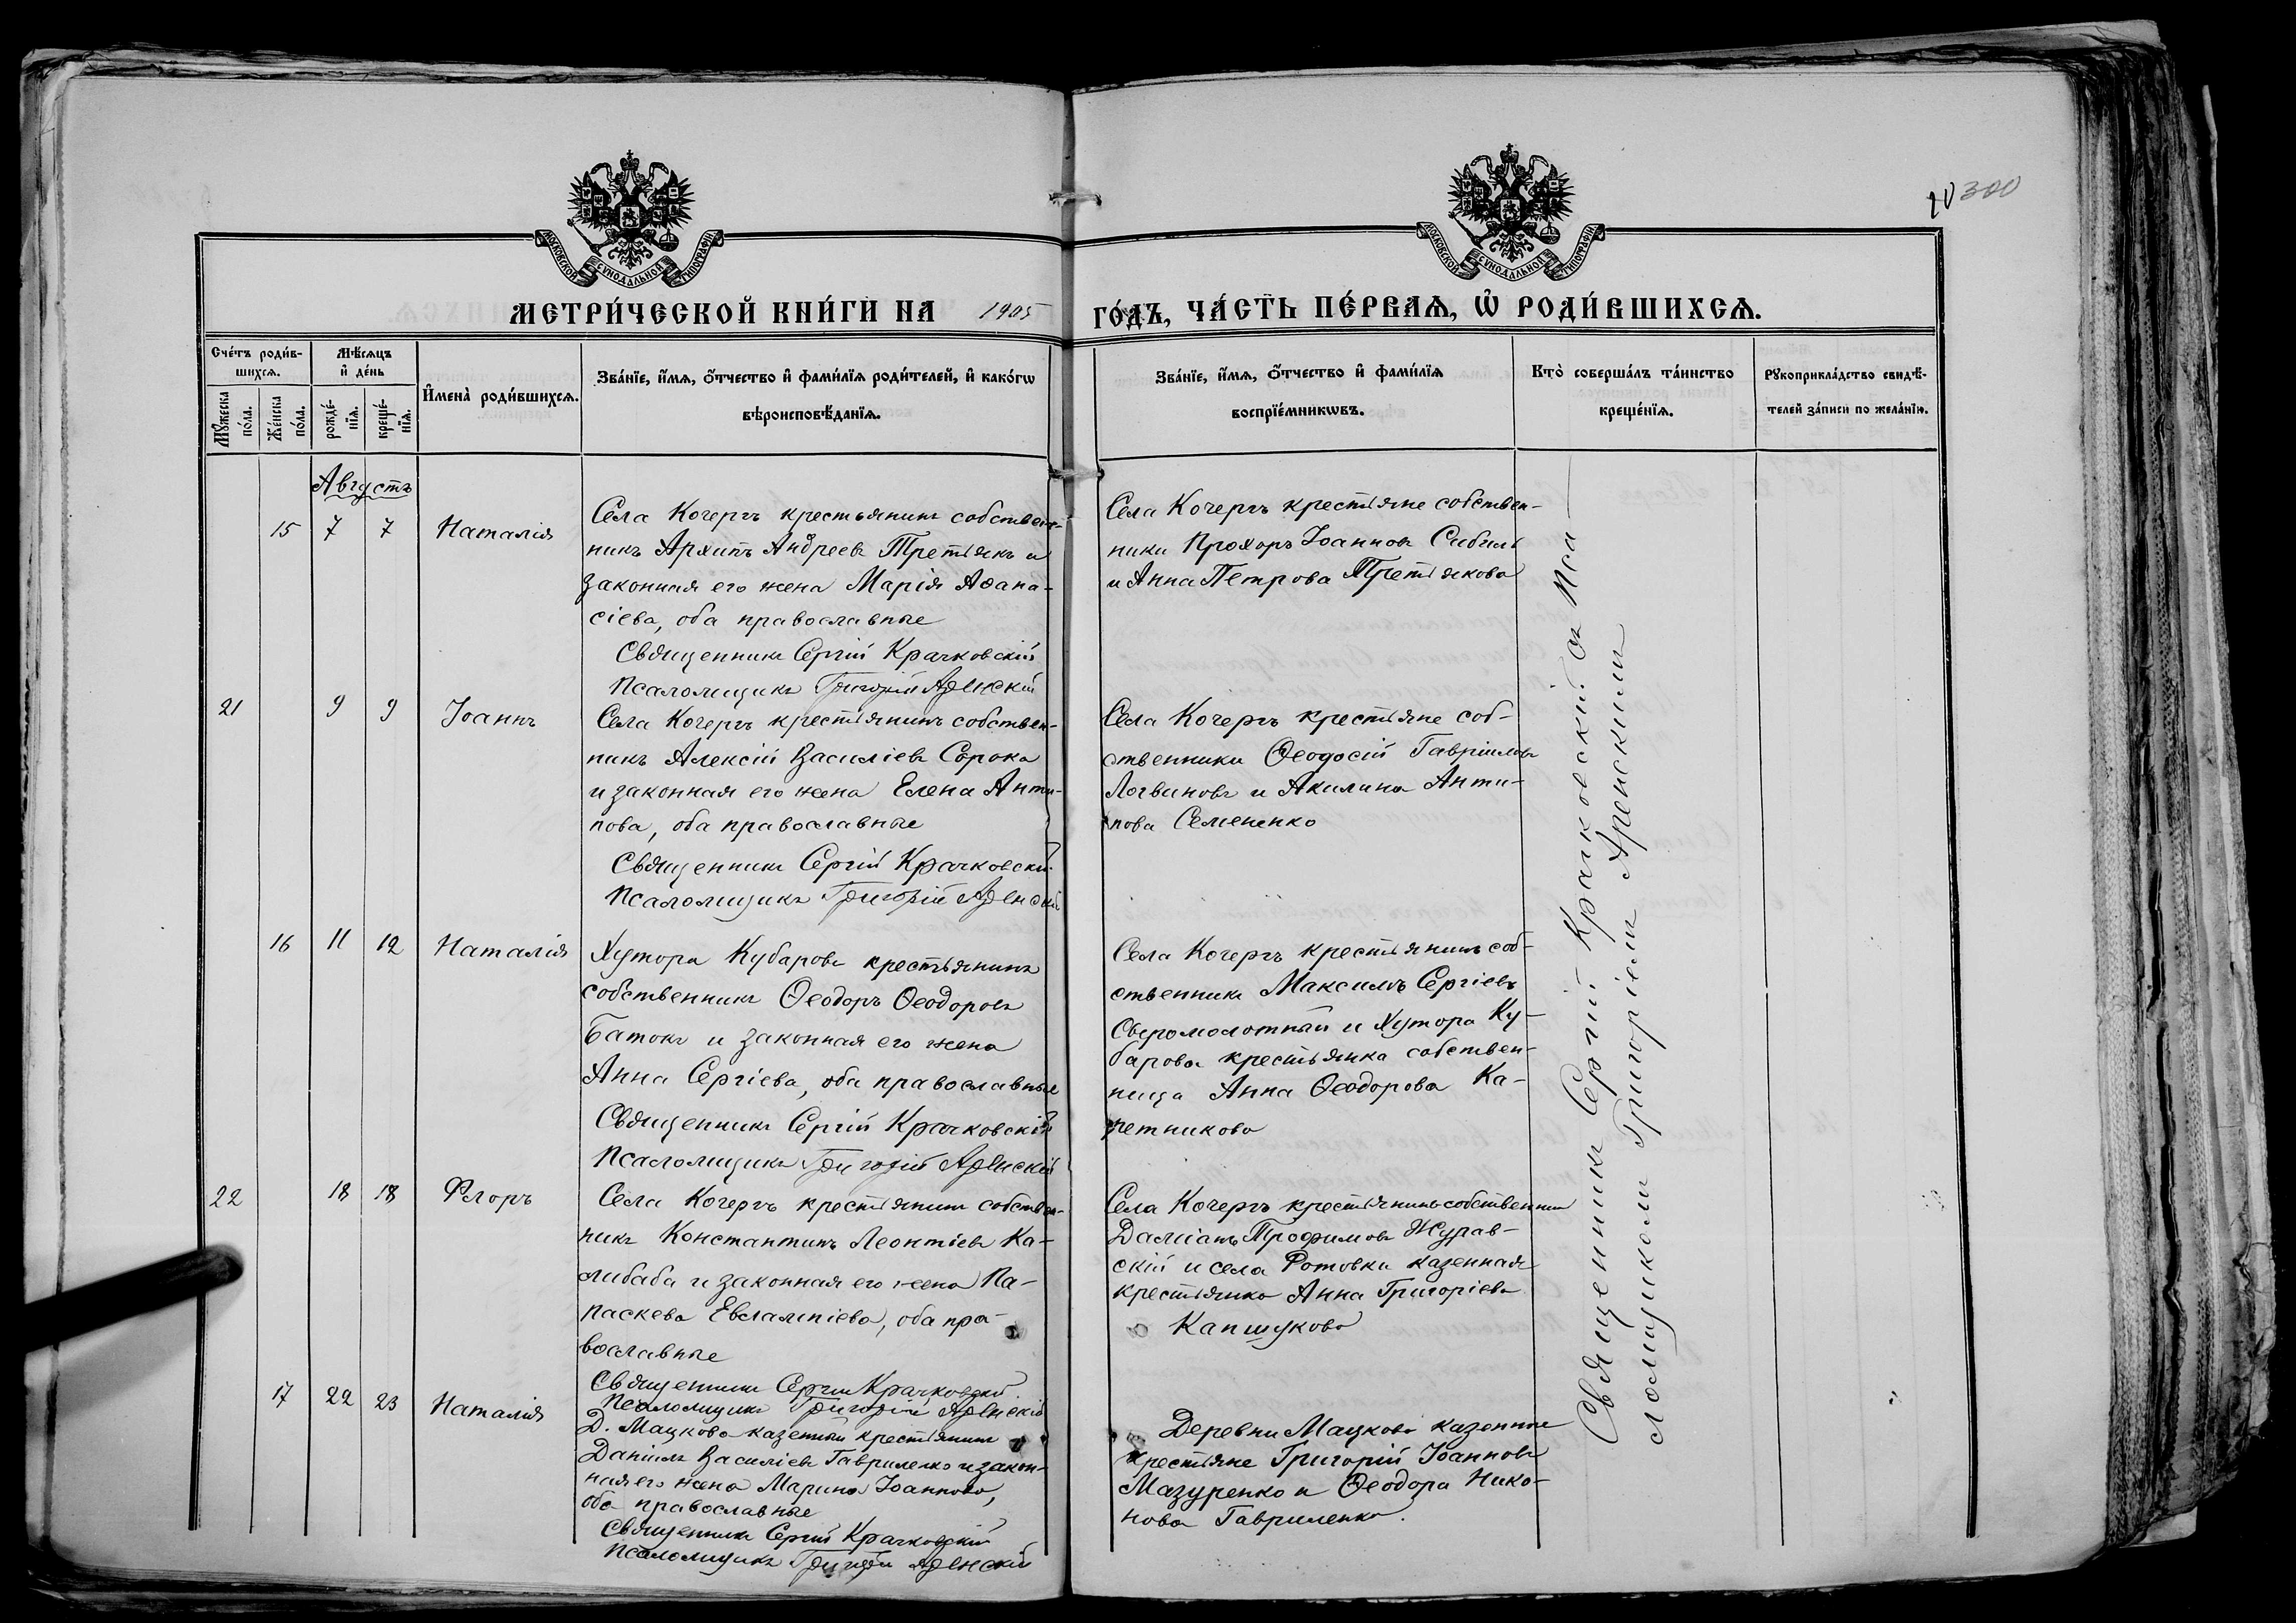 20 300
МОСКОВСКОЙ СѴНОДАЛЬНОЙ ТИПОГРАФІИ
МОСКОВСКОЙ СѴНОДАЛЬНОЙ ТИПОГРАФІИ
МЕТРИ́ЧЕСКОЙ КНИ́ГИ НА 1905 ГО́ДЪ, ЧА́СТЬ ПЕ́РВАѦ, Ѽ РОДИ́ВШИХСѦ.
Сче́тъ роди́в-
шихсѧ.
Мꙋ́жеска
по́ла.
Же́нска
по́ла.
Мѣ́сѧцъ
и҆ де́нь
рожде́-
нїѧ.
креще́-
нїѧ.
И҆мена̀ роди́вшихсѧ.
Зва́нїе, и҆́мѧ, ѻ҆́тчество и҆ фами́лїѧ роди́телей, и҆ како́гѡ
вѣроисповѣ́данїѧ.
Зва́нїе, и҆́мѧ, ѻ҆́тчество и҆ фами́лїѧ
воспрїе́мникѡвъ.
Кто̀ соверша́лъ та́инство
креще́нїѧ.
Рꙋкоприкла́дство свидѣ́-
телей за́писи по жела́нїю.
Августъ
15 7 7 Наталія
Села Кочергъ крестьянинъ собствен-
никъ Архипъ Андреевъ Третьякъ и
законная его жена Марія Аѳана-
сіева, оба православные
Священникъ Сергій Крачковскій
Псаломщикъ Григорій Аренскій
Села Кочергъ крестьяне собствен-
ники Прохоръ Іоанновъ
и Анна Петрова Третьякова
21 9 9 Іоаннъ
Села Кочергъ крестьянинъ собствен-
никъ Алексій Василіевъ Сорока
и законная его жена Елена Анти-
пова, оба православные
Священникъ Сергій Крачковскій
Псаломщикъ Григорій Аренскій
Села Кочергъ крестьяне соб-
ственники Ѳеодосій Гавріиловъ
Логвиновъ и Акилина Анти-
пова Семененко
16 11 12 Наталія
Хутора Кубарова крестьянинъ
собственникъ Ѳеодоръ Ѳеодоровъ
Батокъ и законная его жена
Анна Сергіева, оба православные
Священникъ Сергій Крачковскій
Псаломщикъ Григорій Аренскій
Села Кочергъ крестьянинъ соб-
ственникъ Максимъ Сергіевъ
и Хутора Ку-
барова крестьянка собствен-
ница Анна Ѳеодорова Ка-
четникова
22 18 18 Флоръ
Села Кочергъ крестьянинъ собствен-
никъ Константинъ Леонтіевъ Ка-
либаба и законная его жена Па-
паскева Евлампіева, оба пра-
вославные
Священникъ Сергій Крачковскій
Псаломщикъ Григорій Аренскій
Села Кочергъ крестьянинъ собственник
Даміанъ Трофимовъ Журав-
скій и села Ротовки казенная
крестьянка Анна Григоріева
Капшукова
17 22 23 Наталія
Д. Мацкова казенный крестьянинъ
Даніилъ Василіевъ Гавриленко и закон-
ная его жена Марина Іоаннова,
оба православные
Священникъ Сергій Крачковскій
Псаломщикъ Григорій Аренскій
Деревни Мацкова казенные
крестьяне Григорій Іоанновъ
Мазуренко и Ѳеодора Нико-
нова Гавриленко.
Священникъ Сергій Крачковскій съ Пса
ломщикомъ Григоріемъ Аренскимъ